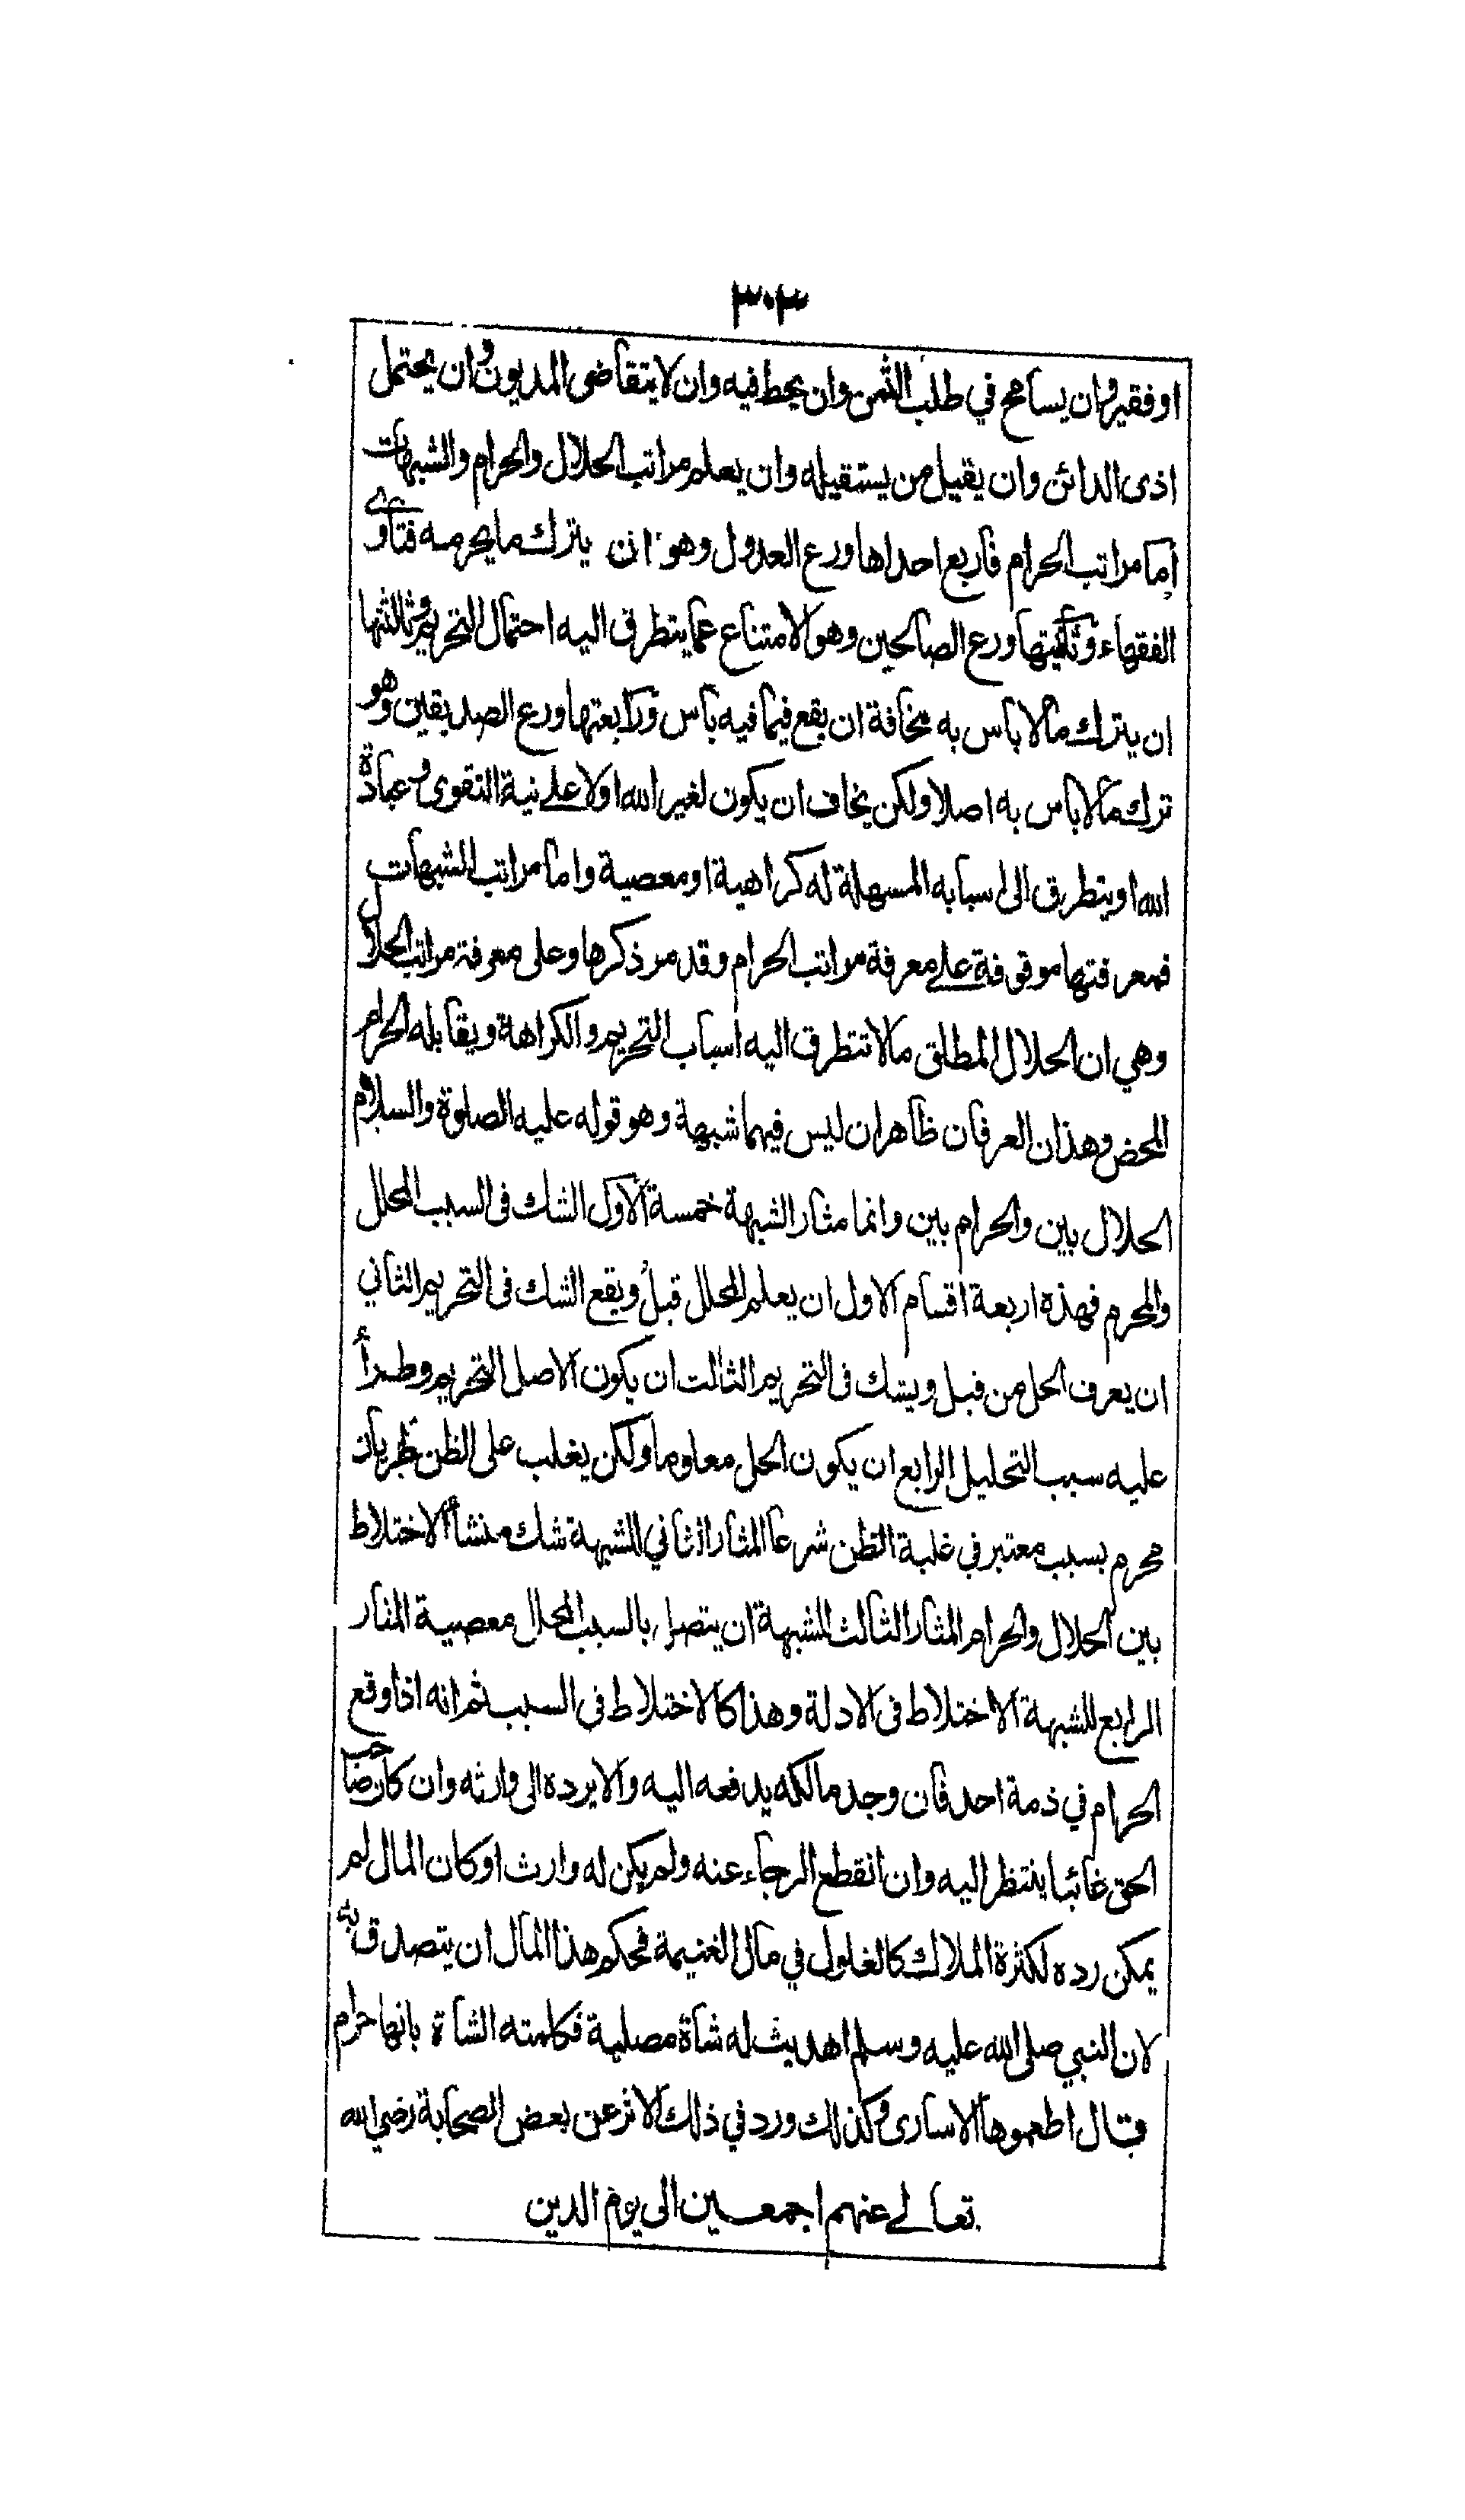 ٣٠٣
او فقير وان يسامح في طلب الثمن وان يحط فيه وان لا يتقاضى المديون وان يحتمل
اذى الدائن وان يقيل من يستقيله وان يعلم مراتب الحلال والحرام والشبهات
اما مراتب الحرام فاربع احداها ورع العدول وهو ان يترك ما يحرمه فتاوى
الفقهاء وثانيتها ورع الصالحين وهو الامتناع عما يتطرق اليه احتمال التحريم وثالثتها
ان يترك مالا باس به مخافة ان يقع فيما فيه باس ورابعتها ورع الصديقين وهو
ترك مالا باس به اصلا ولكن يخاف ان يكون لغير الله او لا على نية التقوى وعبادة
الله او يتطرق الى اسبابه المسهلة له كراهية او معصية واما مراتب الشبهات
فمعرفتها موقوفة على معرفة مراتب الحرام وقد مر ذكرها وعلى معرفة مراتب الحلال
وهي ان الحلال المطلق مالا تتطرق اليه اسباب التحريم والكراهة ويقابله الحرام
المحض وهذان العرفان ظاهران ليس فيهما شبهة وهو قوله عليه الصلوة والسلام
الحلال بين والحرام بين وانما مثار الشبهة خمسة الاول الشك في السبب المحلل
والمحرم فهذه اربعة اقسام الاول ان يعلم المحلل قبل ويقع الشك في التحريم الثاني
ان يعرف الحل من قبل ويشك في التحريم الثالث ان يكون الاصل التحريم وطرأ
عليه سبب التحليل الرابع ان يكون الحل معلوما ولكن يغلب على الظن طريان
محرم بسبب معتبر في غلبة الظن شرعا المثار الثاني للشبهة شك منشأ الاختلاط
بين الحلال والحرام المثار الثالث للشبهة ان يتصل بالسبب المحلل معصية المثار
الرابع للشبهة الاختلاط في الادلة وهذا كالاختلاط في السبب ثم انه اذا وقع
الحرام في ذمة احد فان وجد مالكه يدفعه اليه والا يرده الى وارثه وان كان صاحب
الحق غائبا ينتظر اليه وان انقطع الرجاء عنه ولم يكن له وارث او كان المال لم
يمكن رده لكثرة الملاك كالغلول في مال الغنيمة فحكم هذا المال ان يتصدق به
لان النبي صلى الله عليه وسلم اهديت له شاة مصلية فكلمته الشاة بانها حرام
قال اطعموها الاسارى وكذلك ورد في ذلك الاثر عن بعض الصحابة رضي الله
تعالى عنهم اجمعين الى يوم الدين